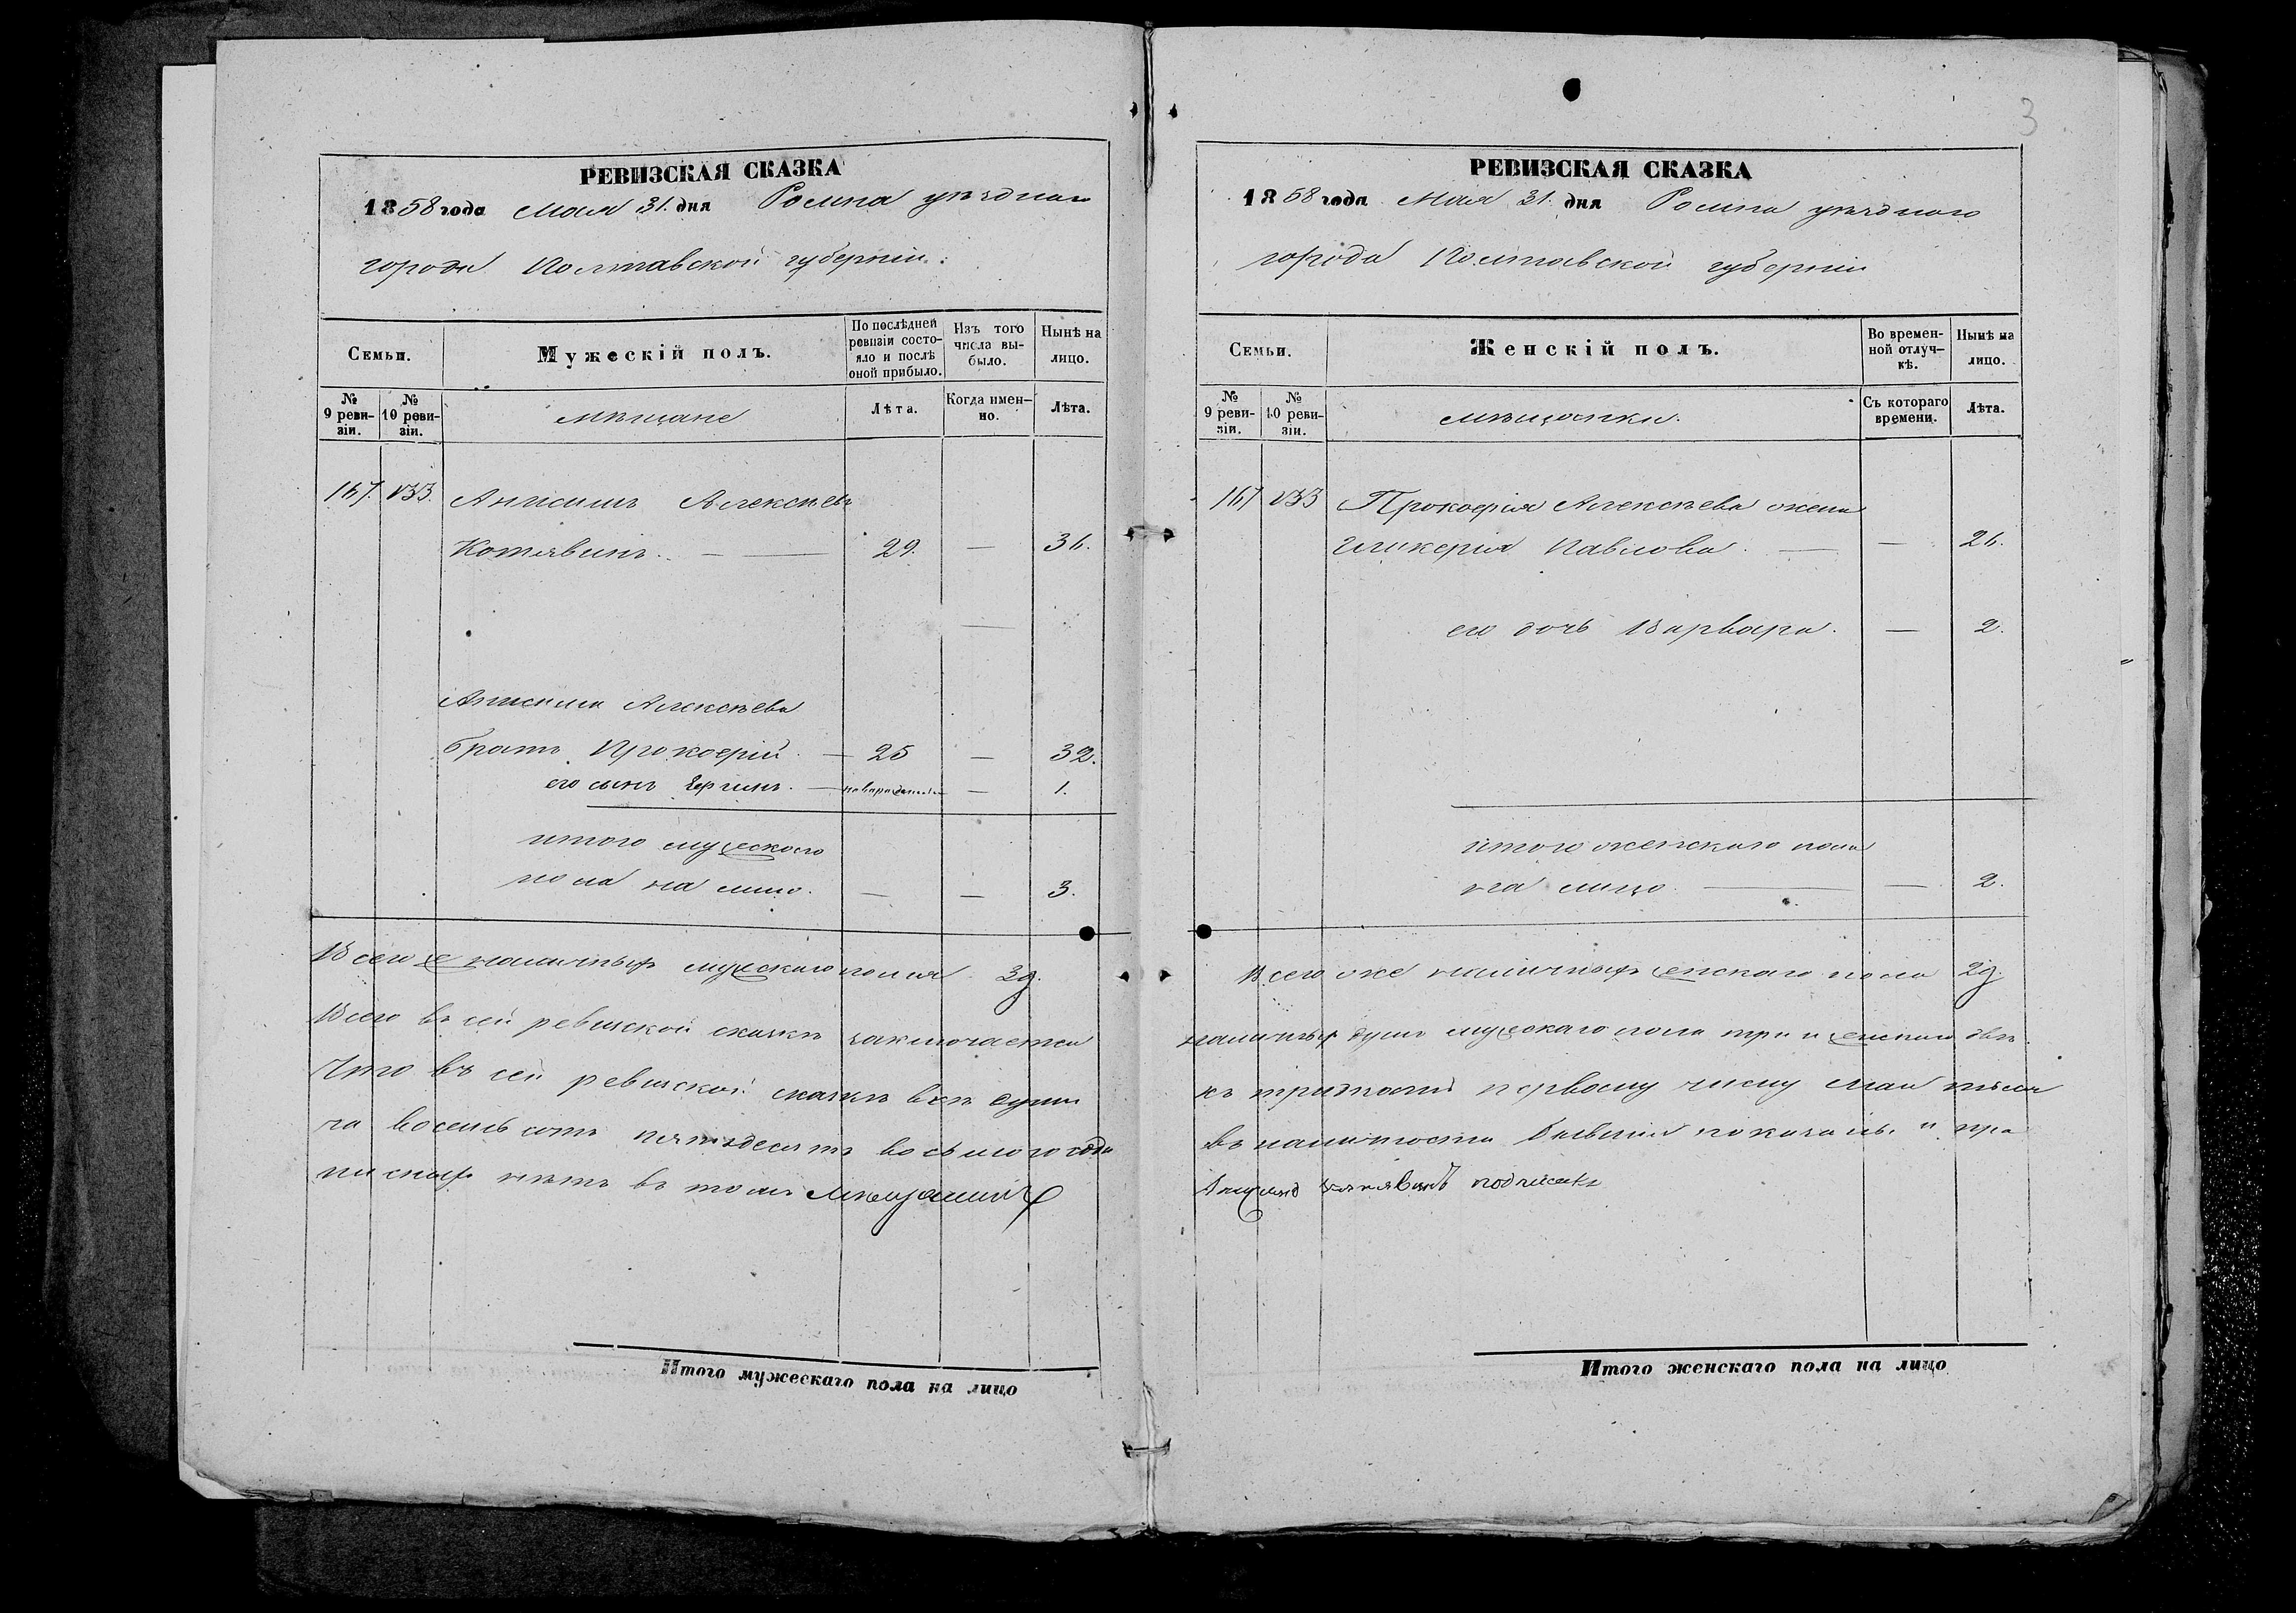 3
РЕВИЗСКАЯ СКАЗКА
1858 года Мая 31. дня Ромна уѣзднаго
города Полтавской губерніи.
Семьи.
Мужескій полъ.
По послѣдней ревизіи состояло и послѣ оной прибыло.
Изъ того числа выбыло.
Нынѣ на лицо.
№ 9 ревизіи.
№ 10 ревизіи.
мѣщане
Лѣта.
Когда именно.
Лѣта.
167. 133. Анисимъ Алексѣевъ
Котявинъ. — — 29. — 36.
Анисима Алексѣева
братъ Прокофій. — 25 — 32.
его сынъ — новорожденный — 1.
итого мужескаго
пола на лицо. — — 3.
Всего же наличныхъ мужескаго пола 3 д.
Всего въ сей ревизской сказкѣ заключается
Что въ сей ревизской сказкѣ всѣ души
та восемьсотъ пятьдесятъ восьмого года
писныхъ нѣтъ въ томъ мѣщанинъ
Итого мужескаго пола на лицо
РЕВИЗСКАЯ СКАЗКА
1858 года Мая 31. дня Ромна уѣзднаго
города Полтавской губерніи
Семьи.
Женскій полъ.
Во временной отлучкѣ.
Нынѣ на лицо.
№ 9 ревизіи.
№ 10 ревизіи.
мѣщанки.
Съ котораго времени.
Лѣта.
167 133 Прокофія Алексѣева жена
Гликерія Павлова. — — 26.
его дочь Варвара. — 2.
итого женскаго пола
на лицо — — 2.
Всего же наличныхъ женскаго пола 2 д.
наличныхъ душъ мужескаго пола три и женскаго двѣ.
къ тридцать первому числу мая
въ наличности показаны. и про
Анисимъ Котявинъ подписалъ
Итого женскаго пола на лицо